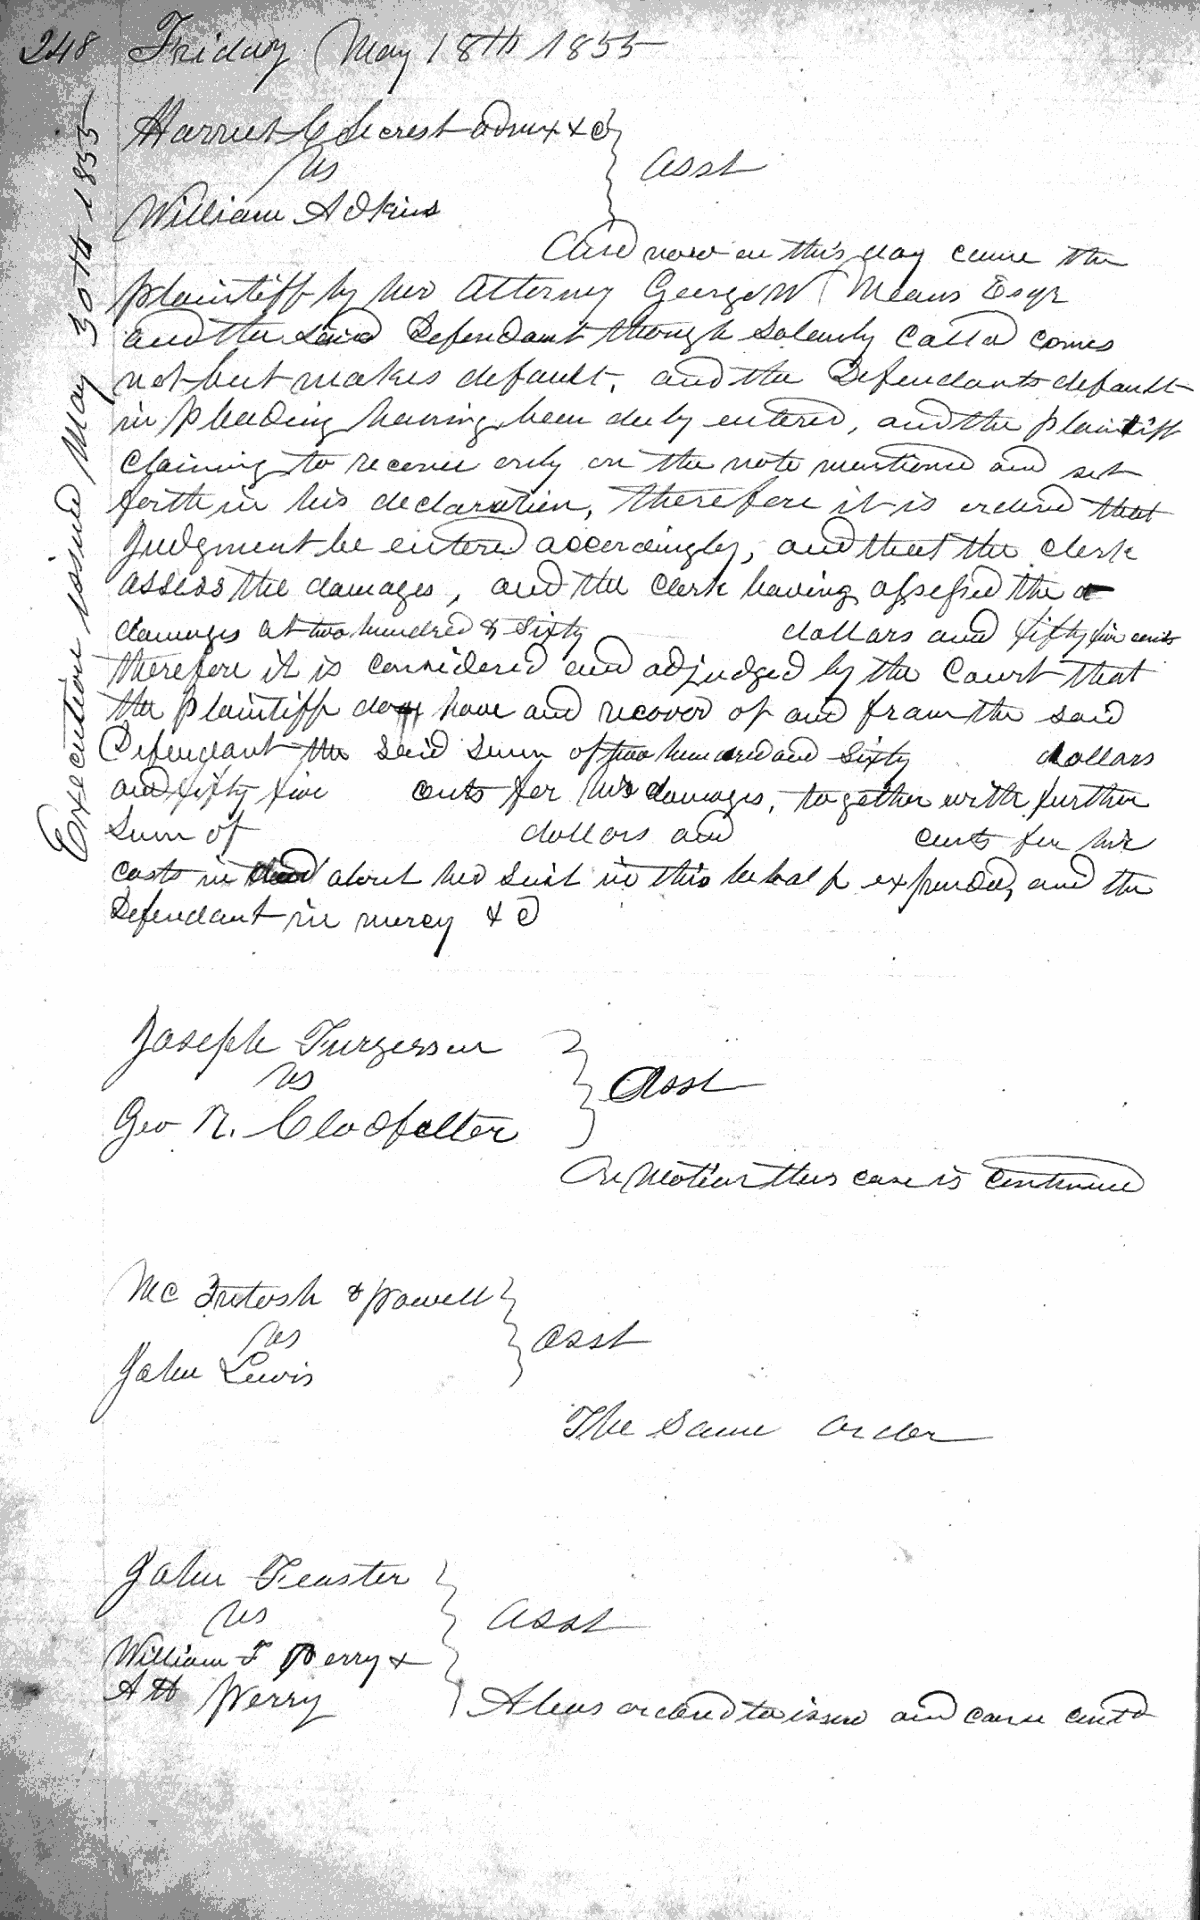 248 Friday May 18th 1855
Execution issued May 30th 1855
Harriet C Secrest admx & C
vs
Asst
William Adkins
And now on this day came the
plaintiff by her Attorney George W Means Esqr
and the said Defendant though solemly calld comes
not but makes default, and the Defendants default
in pleading having been duly entered, and the plaintiff
claiming to recover only on the note mentioned and set
forth in his declaration, therefore it is ordered that
Judgment be entered accordingly, and that the clerk
assess the damages, and the clerk having assessed the
damages at two hundred & sixty dollars and fifty five cents
therefore it is considered and adjudged by the Court that
the plaintiff do have and recover of and from the said
Defendant the said sum of two hundred and sixty dollars
and fifty five cents for his damages, together with further
sum of dollars and cents for his
costs in and about her suit in this behalf expended, and the
Defendant in mercy & C
Joseph Furgerson
vs
Asst
Geo R. Clodfelter
On motion this case is continued
Mc Intosh & Powell
vs
Asst
John Lewis
The Same order
John Feaster
vs
Asst
William F Perry &
A H Perry
Alias ordered to issue and cause contd